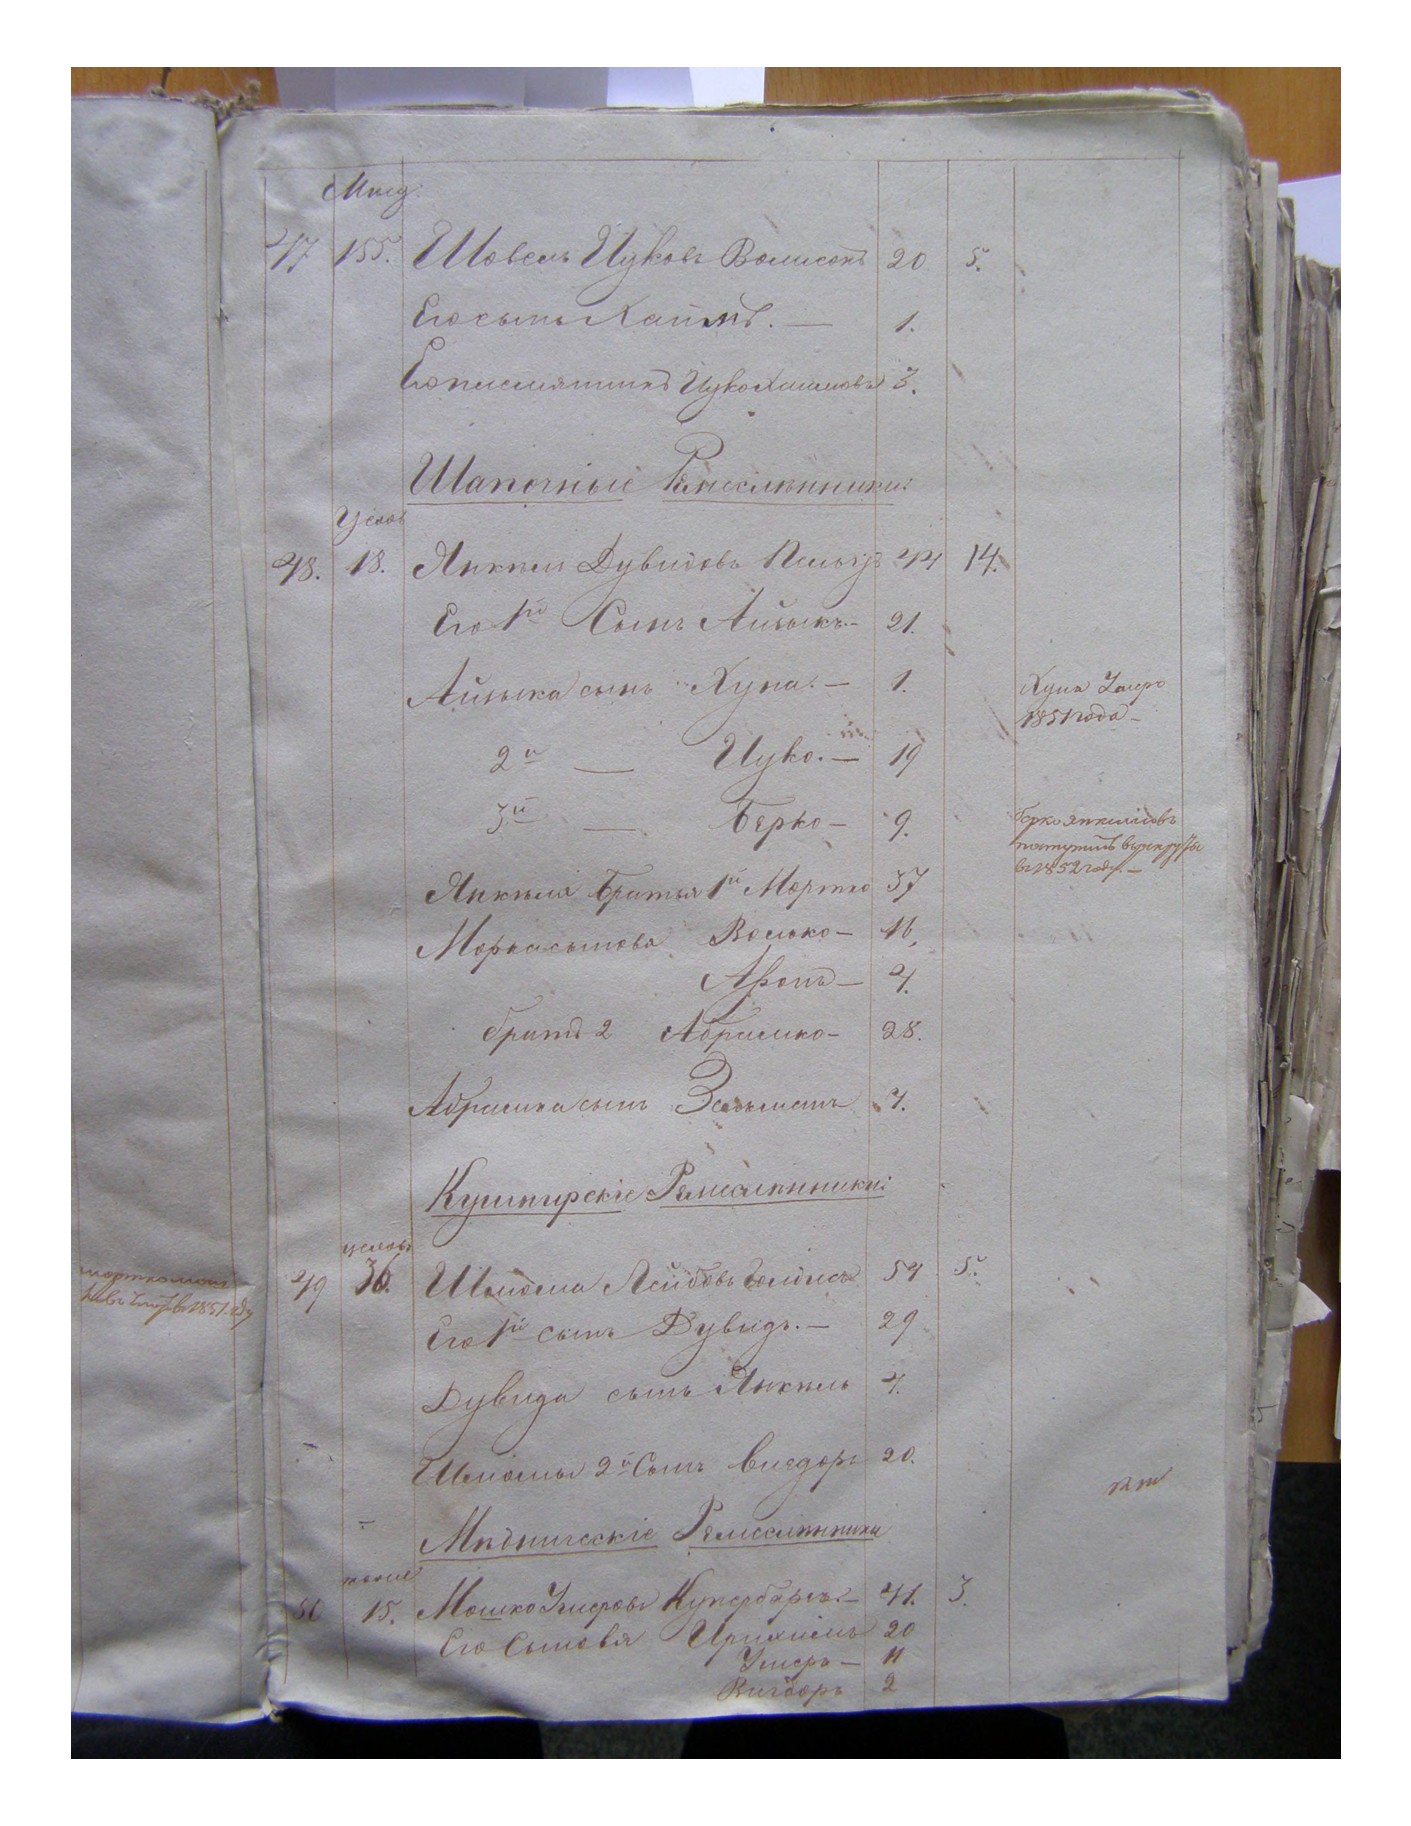 Мищ:
47 155. Шовель Ицковъ Волисонъ 20 5.
Его сынъ Хаимъ. — 1.
Его племянникъ Ицко 3.
Шапочныя Ремеслѣнники:
18. Янкель Дувидовъ 44 14.
48.
Его 1й Сынъ Айзыкъ — 21.
Айзыка сынъ Хуна. — 1.
Хуна Умеръ
1851 года —
2й — Ицко. — 19
3й — Берко — 9.
Берко Янкелевъ
поступилъ в рекруты
в 1852 году. —
Янкеля Братья 1й Мортко 37
Морка сыновья Волько — 16.
Аронъ — 4.
братъ 2 Абрамко — 28.
Абрамка сынъ Зельманъ 7.
Кушнирскіе Ремеслѣнники:
49 36. Шліома Лейбовъ 54 5.
Его 1й сынъ Дувидъ. — 29
в 1851 году
Дувида сынъ Янкель 4.
Шліомы 2й Сынъ 20.
Мѣдническіе Ремеслѣнники
50 15. Мошко Умеровъ Купербаргъ. — 41. 3.
Его Сыновья 20
Умеръ — 11
Вигдоръ 2